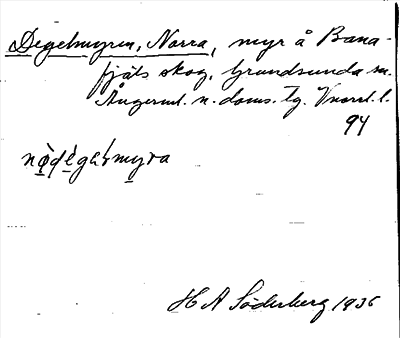 Degelmyren, Norra, myr å Bana-
fjäls skog, Grundsunda sn.
Ångerml. n. doms. tg. Vnorrl. l.
94
H A Söderberg 1936